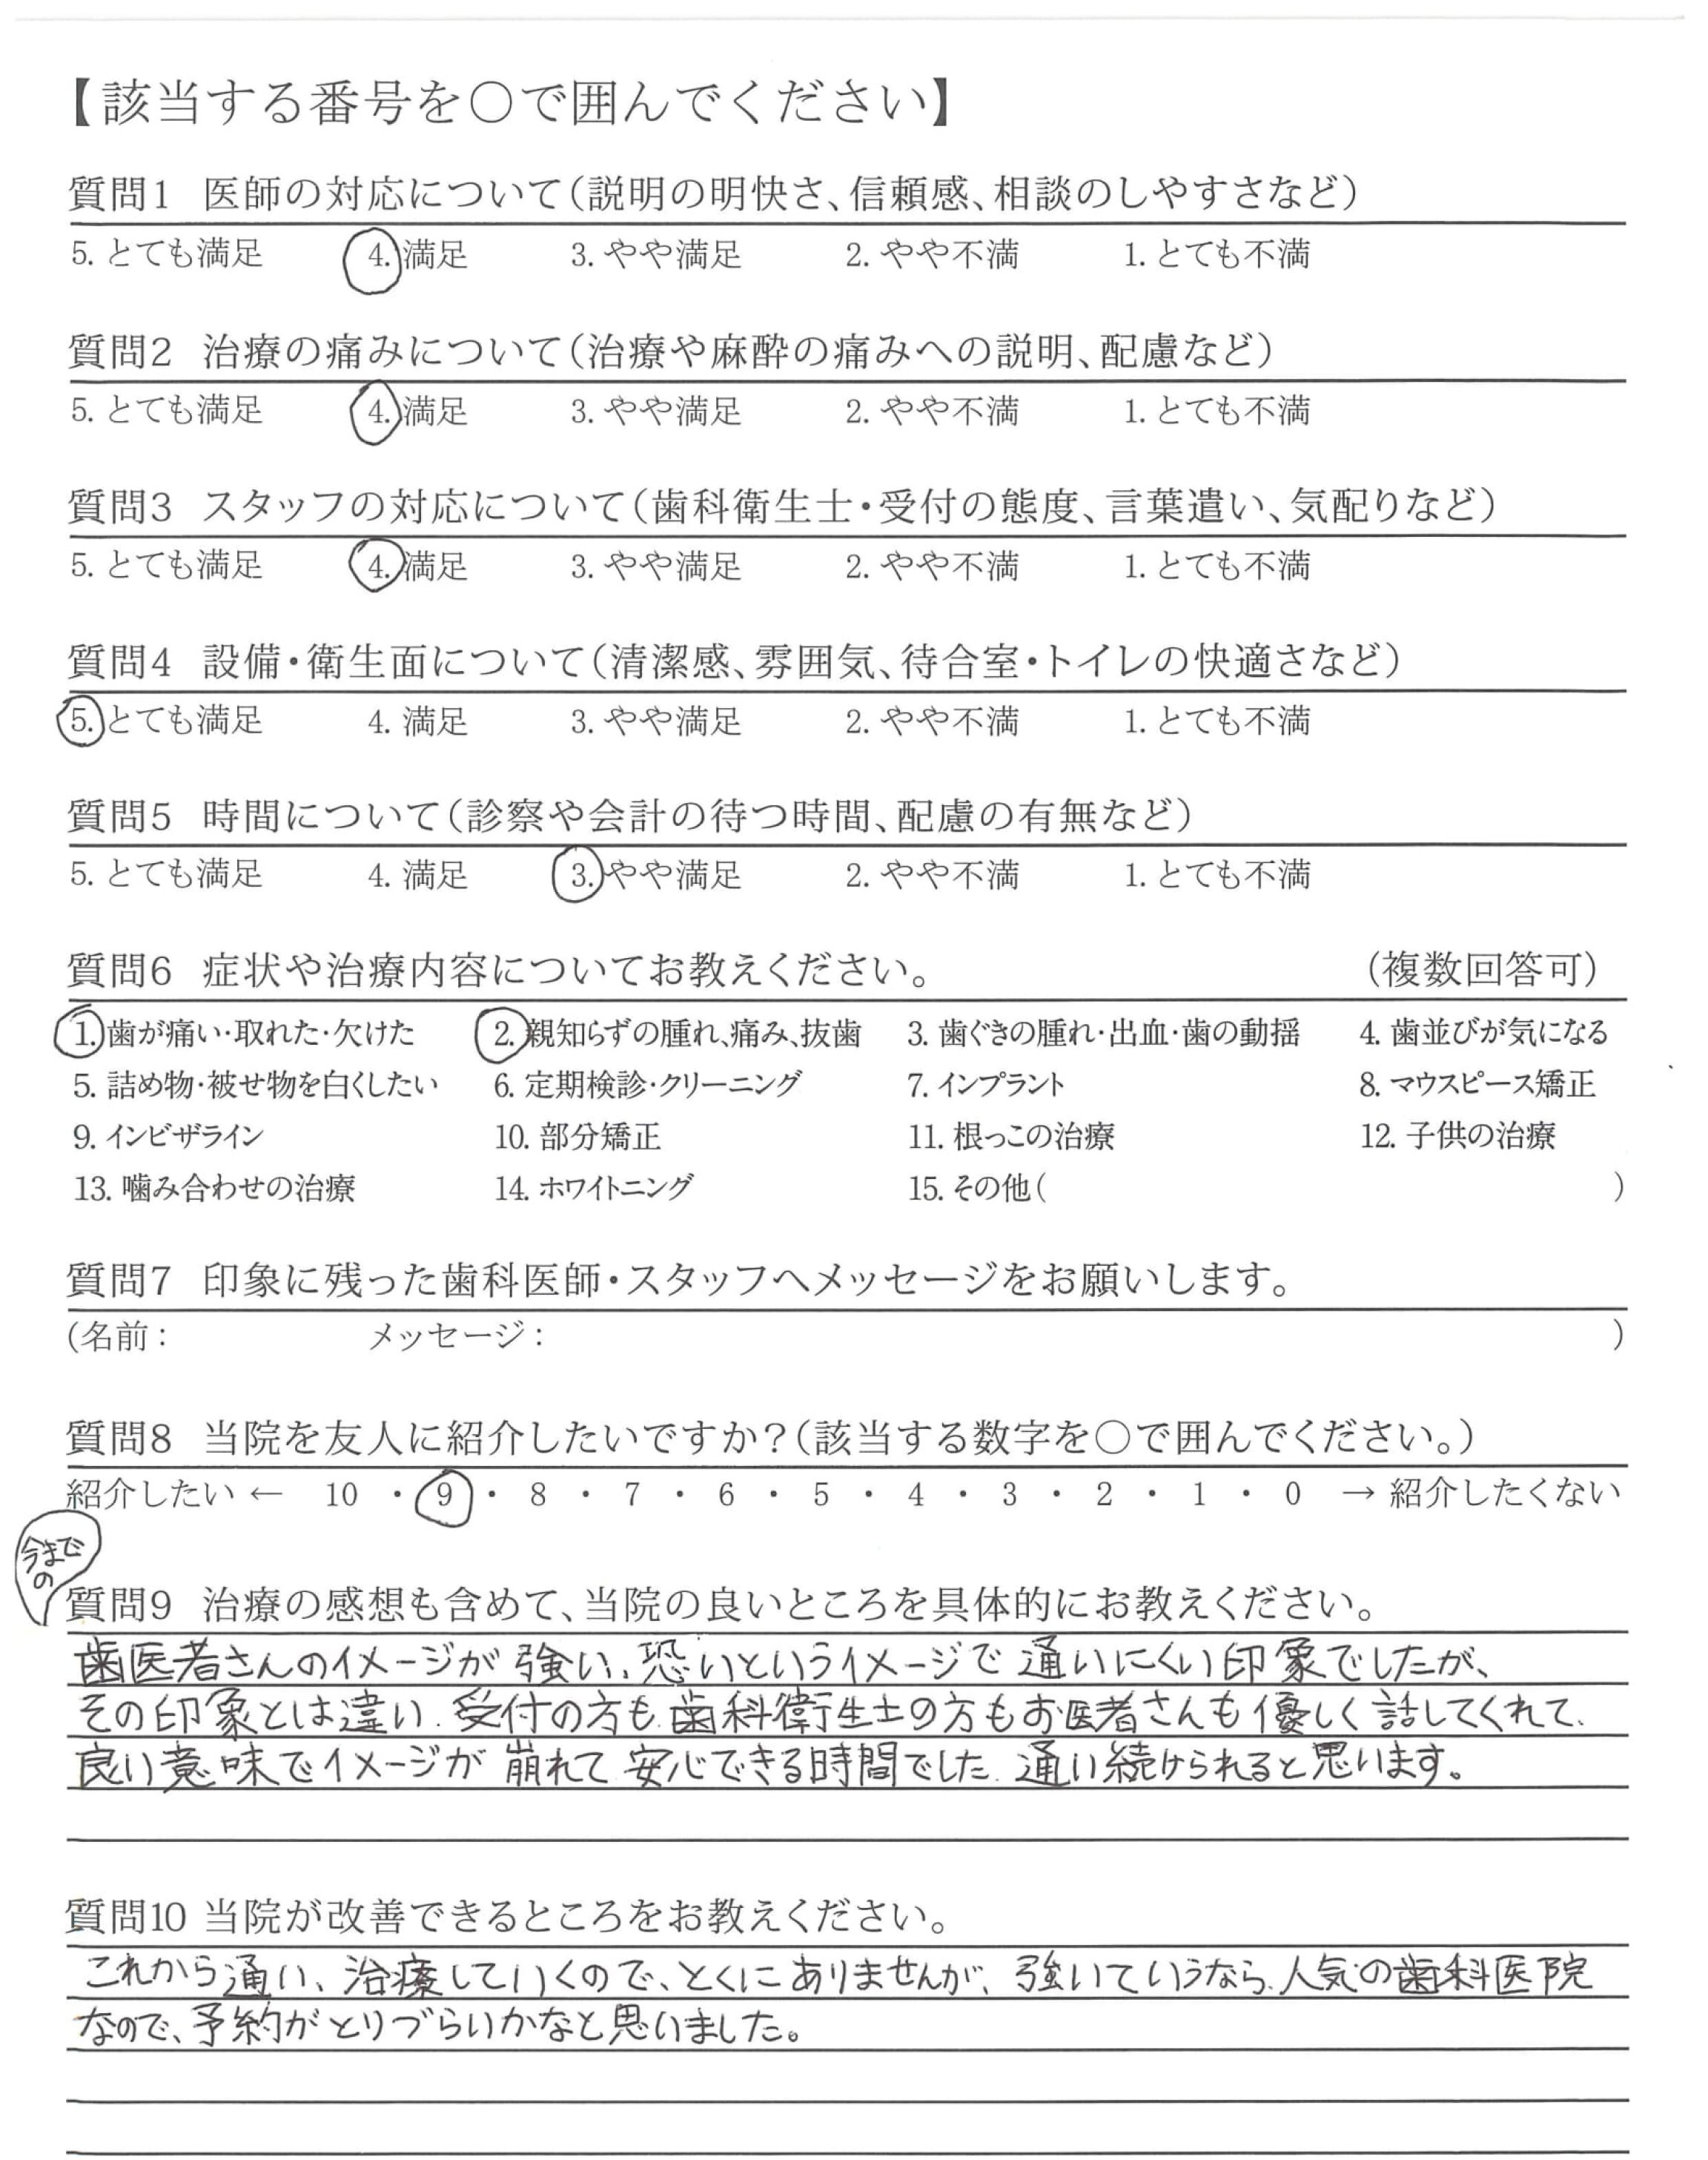 【該当する番号を〇で囲んでください】
質問1 医師の対応について（説明の明快さ、信頼感、相談のしやすさなど）
5. とても満足 4. 満足 3. やや満足 2. やや不満 1. とても不満
質問2 治療の痛みについて（治療や麻酔の痛みへの説明、配慮など）
5. とても満足 4. 満足 3. やや満足 2. やや不満 1. とても不満
質問3 スタッフの対応について（歯科衛生士・受付の態度、言葉遣い、気配りなど）
5. とても満足 4. 満足 3. やや満足 2. やや不満 1. とても不満
質問4 設備・衛生面について（清潔感、雰囲気、待合室・トイレの快適さなど）
5. とても満足 4. 満足 3. やや満足 2. やや不満 1. とても不満
質問5 時間について（診察や会計の待つ時間、配慮の有無など）
5. とても満足 4. 満足 3. やや満足 2. やや不満 1. とても不満
質問6 症状や治療内容についてお教えください。 （複数回答可）
1. 歯が痛い・取れた・欠けた 2. 親知らずの腫れ、痛み、抜歯 3. 歯ぐきの腫れ・出血・歯の動揺 4. 歯並びが気になる
5. 詰め物・被せ物を白くしたい 6. 定期検診・クリーニング 7. インプラント 8. マウスピース矯正
9. インビザライン 10. 部分矯正 11. 根っこの治療 12. 子供の治療
13. 噛み合わせの治療 14. ホワイトニング 15. その他（ ）
質問7 印象に残った歯科医師・スタッフへメッセージをお願いします。
（名前： メッセージ： ）
質問8 当院を友人に紹介したいですか？（該当する数字を〇で囲んでください。）
紹介したい ← 10 ・ 9 ・ 8 ・ 7 ・ 6 ・ 5 ・ 4 ・ 3 ・ 2 ・ 1 ・ 0 → 紹介したくない
今まで
の
質問9 治療の感想も含めて、当院の良いところを具体的にお教えください。
歯医者さんのイメージが強い、恐いというイメージで通いにくい印象でしたが、
その印象とは違い、受付の方も、歯科衛生士の方もお医者さんも優しく話してくれて、
良い意味でイメージが崩れて安心できる時間でした。通い続けられると思います。
質問10 当院が改善できるところをお教えください。
これから通い、治療していくので、とくにありませんが、強いていうなら、人気の歯科医院
なので、予約がとりづらいかなと思いました。